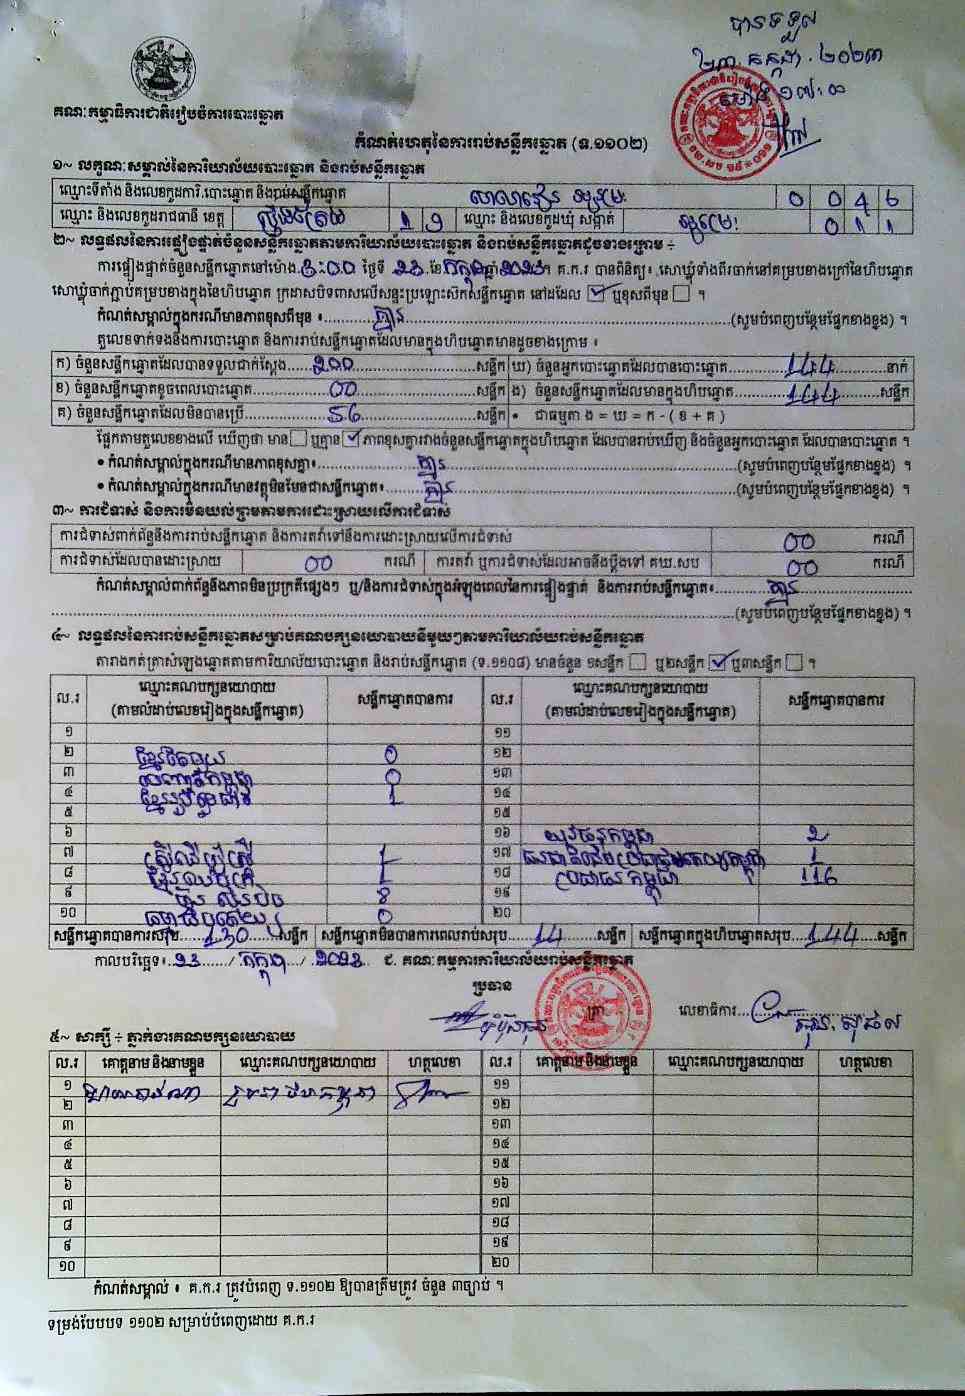 បានទទួល
២៣.កក្កដា.២០២៣
ម៉ោង ១៧:៣០
គណៈកម្មាធិការជាតិរៀបចំការបោះឆ្នោត
កំណត់ហេតុនៃការរាប់សន្លឹកឆ្នោត (ទ.១១០២)
១~ លក្ខណៈសម្គាល់នៃការិយាល័យបោះឆ្នោត និងរាប់សន្លឹកឆ្នោត
ឈ្មោះទីតាំង និងលេខកូដការិ.បោះឆ្នោត និងរាប់សន្លឹកឆ្នោត 0 0 4 6
ឈ្មោះ និងលេខកូដរាជធានី ខេត្ត 1 9 ឈ្មោះ និងលេខកូដឃុំ សង្កាត់ 0 1 1
២~ លទ្ធផលនៃការផ្ទៀងផ្ទាត់ចំនួនសន្លឹកឆ្នោតតាមការិយាល័យបោះឆ្នោត និងរាប់សន្លឹកឆ្នោតដូចខាងក្រោម ÷
ការផ្ទៀងផ្ទាត់ចំនួនសន្លឹកឆ្នោតនៅម៉ោង 3:00 ថ្ងៃទី 23 ខែ កក្កដា ឆ្នាំ 2023។ គ.ក.រ បានពិនិត្យ៖ សោឃ្លុំទាំងពីរចាក់នៅគម្របខាងក្រៅនៃហិបឆ្នោត
សោឃ្លុំចាក់ភ្ជាប់គម្របខាងក្នុងនៃហិបឆ្នោត ក្រដាសបិទពាសលើសន្ទះប្រឡោះស៊កសន្លឹកឆ្នោត នៅដដែល ☑ ឬខុសពីមុន ☐ ។
កំណត់សម្គាល់ក្នុងករណីមានភាពខុសពីមុន ៖ គ្មាន (សូមបំពេញបន្ថែមផ្នែកខាងខ្នង) ។
តួលេខទាក់ទងនឹងការបោះឆ្នោត និងការរាប់សន្លឹកឆ្នោតដែលមានក្នុងហិបឆ្នោតមានដូចខាងក្រោម ៖
ក) ចំនួនសន្លឹកឆ្នោតដែលបានទទួលជាក់ស្តែង 200 សន្លឹក ឃ) ចំនួនអ្នកបោះឆ្នោតដែលបានបោះឆ្នោត 144 នាក់
ខ) ចំនួនសន្លឹកឆ្នោតខូចពេលបោះឆ្នោត 00 សន្លឹក ង) ចំនួនសន្លឹកឆ្នោតដែលមានក្នុងហិបឆ្នោត 144 សន្លឹក
គ) ចំនួនសន្លឹកឆ្នោតដែលមិនបានប្រើ 56 សន្លឹក • ជាធម្មតា ង = ឃ = ក - ( ខ + គ )
ផ្អែកតាមតួលេខខាងលើ ឃើញថា មាន ☐ ឬគ្មាន ☑ ភាពខុសគ្នារវាងចំនួនសន្លឹកឆ្នោតក្នុងហិបឆ្នោត ដែលបានរាប់ឃើញ និងចំនួនអ្នកបោះឆ្នោត ដែលបានបោះឆ្នោត ។
• កំណត់សម្គាល់ក្នុងករណីមានភាពខុសគ្នា៖ គ្មាន (សូមបំពេញបន្ថែមផ្នែកខាងខ្នង) ។
• កំណត់សម្គាល់ក្នុងករណីមានវត្ថុមិនមែនជាសន្លឹកឆ្នោត៖ គ្មាន (សូមបំពេញបន្ថែមផ្នែកខាងខ្នង) ។
៣~ ការជំទាស់ និងការមិនយល់ព្រមតាមការដោះស្រាយលើការជំទាស់
ការជំទាស់ពាក់ព័ន្ធនឹងការរាប់សន្លឹកឆ្នោត និងការតវ៉ាទៅនឹងការដោះស្រាយលើការជំទាស់ 00 ករណី
ការជំទាស់ដែលបានដោះស្រាយ 00 ករណី ការតវ៉ា ឬការជំទាស់ដែលអាចនឹងប្តឹងទៅ គឃ.សប 00 ករណី
កំណត់សម្គាល់ពាក់ព័ន្ធនឹងភាពមិនប្រក្រតីផ្សេងៗ ឬ/និងការជំទាស់ក្នុងអំឡុងពេលនៃការផ្ទៀងផ្ទាត់ និងការរាប់សន្លឹកឆ្នោត៖ គ្មាន
(សូមបំពេញបន្ថែមផ្នែកខាងខ្នង) ។
៤~ លទ្ធផលនៃការរាប់សន្លឹកឆ្នោតសម្រាប់គណបក្សនយោបាយនីមួយៗតាមការិយាល័យរាប់សន្លឹកឆ្នោត
តារាងកត់ត្រាសំឡេងឆ្នោតតាមការិយាល័យបោះឆ្នោត និងរាប់សន្លឹកឆ្នោត (ទ.១១០៨) មានចំនួន ១សន្លឹក ☐ ឬ២សន្លឹក ☑ ឬ៣សន្លឹក ☐ ។
ល.រ ឈ្មោះគណបក្សនយោបាយ (តាមលំដាប់លេខរៀងក្នុងសន្លឹកឆ្នោត) សន្លឹកឆ្នោតបានការ ល.រ ឈ្មោះគណបក្សនយោបាយ (តាមលំដាប់លេខរៀងក្នុងសន្លឹកឆ្នោត) សន្លឹកឆ្នោតបានការ
១ ១១
២ ខ្មែរតែមួយ 0 ១២
៣ 0 ១៣
៤ 1 ១៤
៥ ១៥
៦ ១៦ យុវជនកម្ពុជា 2
៧ 1 ១៧ 1
៨ 1 ១៨ ប្រជាជនកម្ពុជា 116
៩ 8 ១៩
១០ 0 ២០
សន្លឹកឆ្នោតបានការសរុប 130 សន្លឹក សន្លឹកឆ្នោតមិនបានការពេលរាប់សរុប 14 សន្លឹក សន្លឹកឆ្នោតក្នុងហិបឆ្នោតសរុប 144 សន្លឹក
កាលបរិច្ឆេទ៖ 23 / កក្កដា / 2023 ជ. គណៈកម្មការការិយាល័យរាប់សន្លឹកឆ្នោត
ប្រធាន
ត្រា លេខាធិការ
៥~ សាក្សី ÷ ភ្នាក់ងារគណបក្សនយោបាយ
ល.រ គោត្តនាម និងនាមខ្លួន ឈ្មោះគណបក្សនយោបាយ ហត្ថលេខា ល.រ គោត្តនាម និងនាមខ្លួន ឈ្មោះគណបក្សនយោបាយ ហត្ថលេខា
១ ១១
២ ១២
៣ ១៣
៤ ១៤
៥ ១៥
៦ ១៦
៧ ១៧
៨ ១៨
៩ ១៩
១០ ២០
កំណត់សម្គាល់ ៖ គ.ក.រ ត្រូវបំពេញ ទ.១១០២ ឱ្យបានត្រឹមត្រូវ ចំនួន ៣ច្បាប់ ។
ទម្រង់បែបបទ ១១០២ សម្រាប់បំពេញដោយ គ.ក.រ